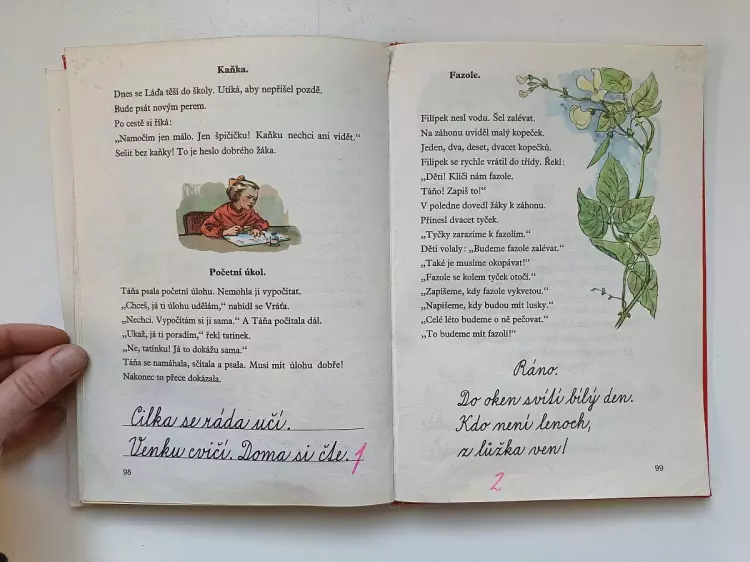 Kaňka.
Dnes se Láďa těší do školy. Utíká, aby nepřišel pozdě.
Bude psát novým perem.
Po cestě si říká:
„Namočím jen málo. Jen špičičku! Kaňku nechci ani vidět.“
Sešit bez kaňky! To je heslo dobrého žáka.
Početní úkol.
Táňa psala početní úlohu. Nemohla ji vypočítat.
„Chceš, já ti úlohu udělám,“ nabídl se Vráťa.
„Nechci. Vypočítám si ji sama.“ A Táňa počítala dál.
„Ukaž, já ti poradím,“ řekl tatínek.
„Ne, tatínku! Já to dokážu sama.“
Táňa se namáhala, sčítala a psala. Musí mít úlohu dobře!
Nakonec to přece dokázala.
Cilka se ráda učí.
Venku cvičí. Doma si čte. 1
98
Fazole.
Filípek nesl vodu. Šel zalévat.
Na záhonu uviděl malý kopeček.
Jeden, dva, deset, dvacet kopečků.
Filípek se rychle vrátil do třídy. Řekl:
„Děti! Klíčí nám fazole.
Táňo! Zapiš to!“
V poledne dovedl žáky k záhonu.
Přinesl dvacet tyček.
„Tyčky zarazíme k fazolím.“
Děti volaly: „Budeme fazole zalévat.“
„Také je musíme okopávat!“
„Fazole se kolem tyček otočí.“
„Zapíšeme, kdy fazole vykvetou.“
„Napíšeme, kdy budou mít lusky.“
„Celé léto budeme o ně pečovat.“
„To budeme mít fazolí!“
Ráno.
Do oken svítí bílý den.
Kdo není lenoch,
z lůžka ven!
2
99